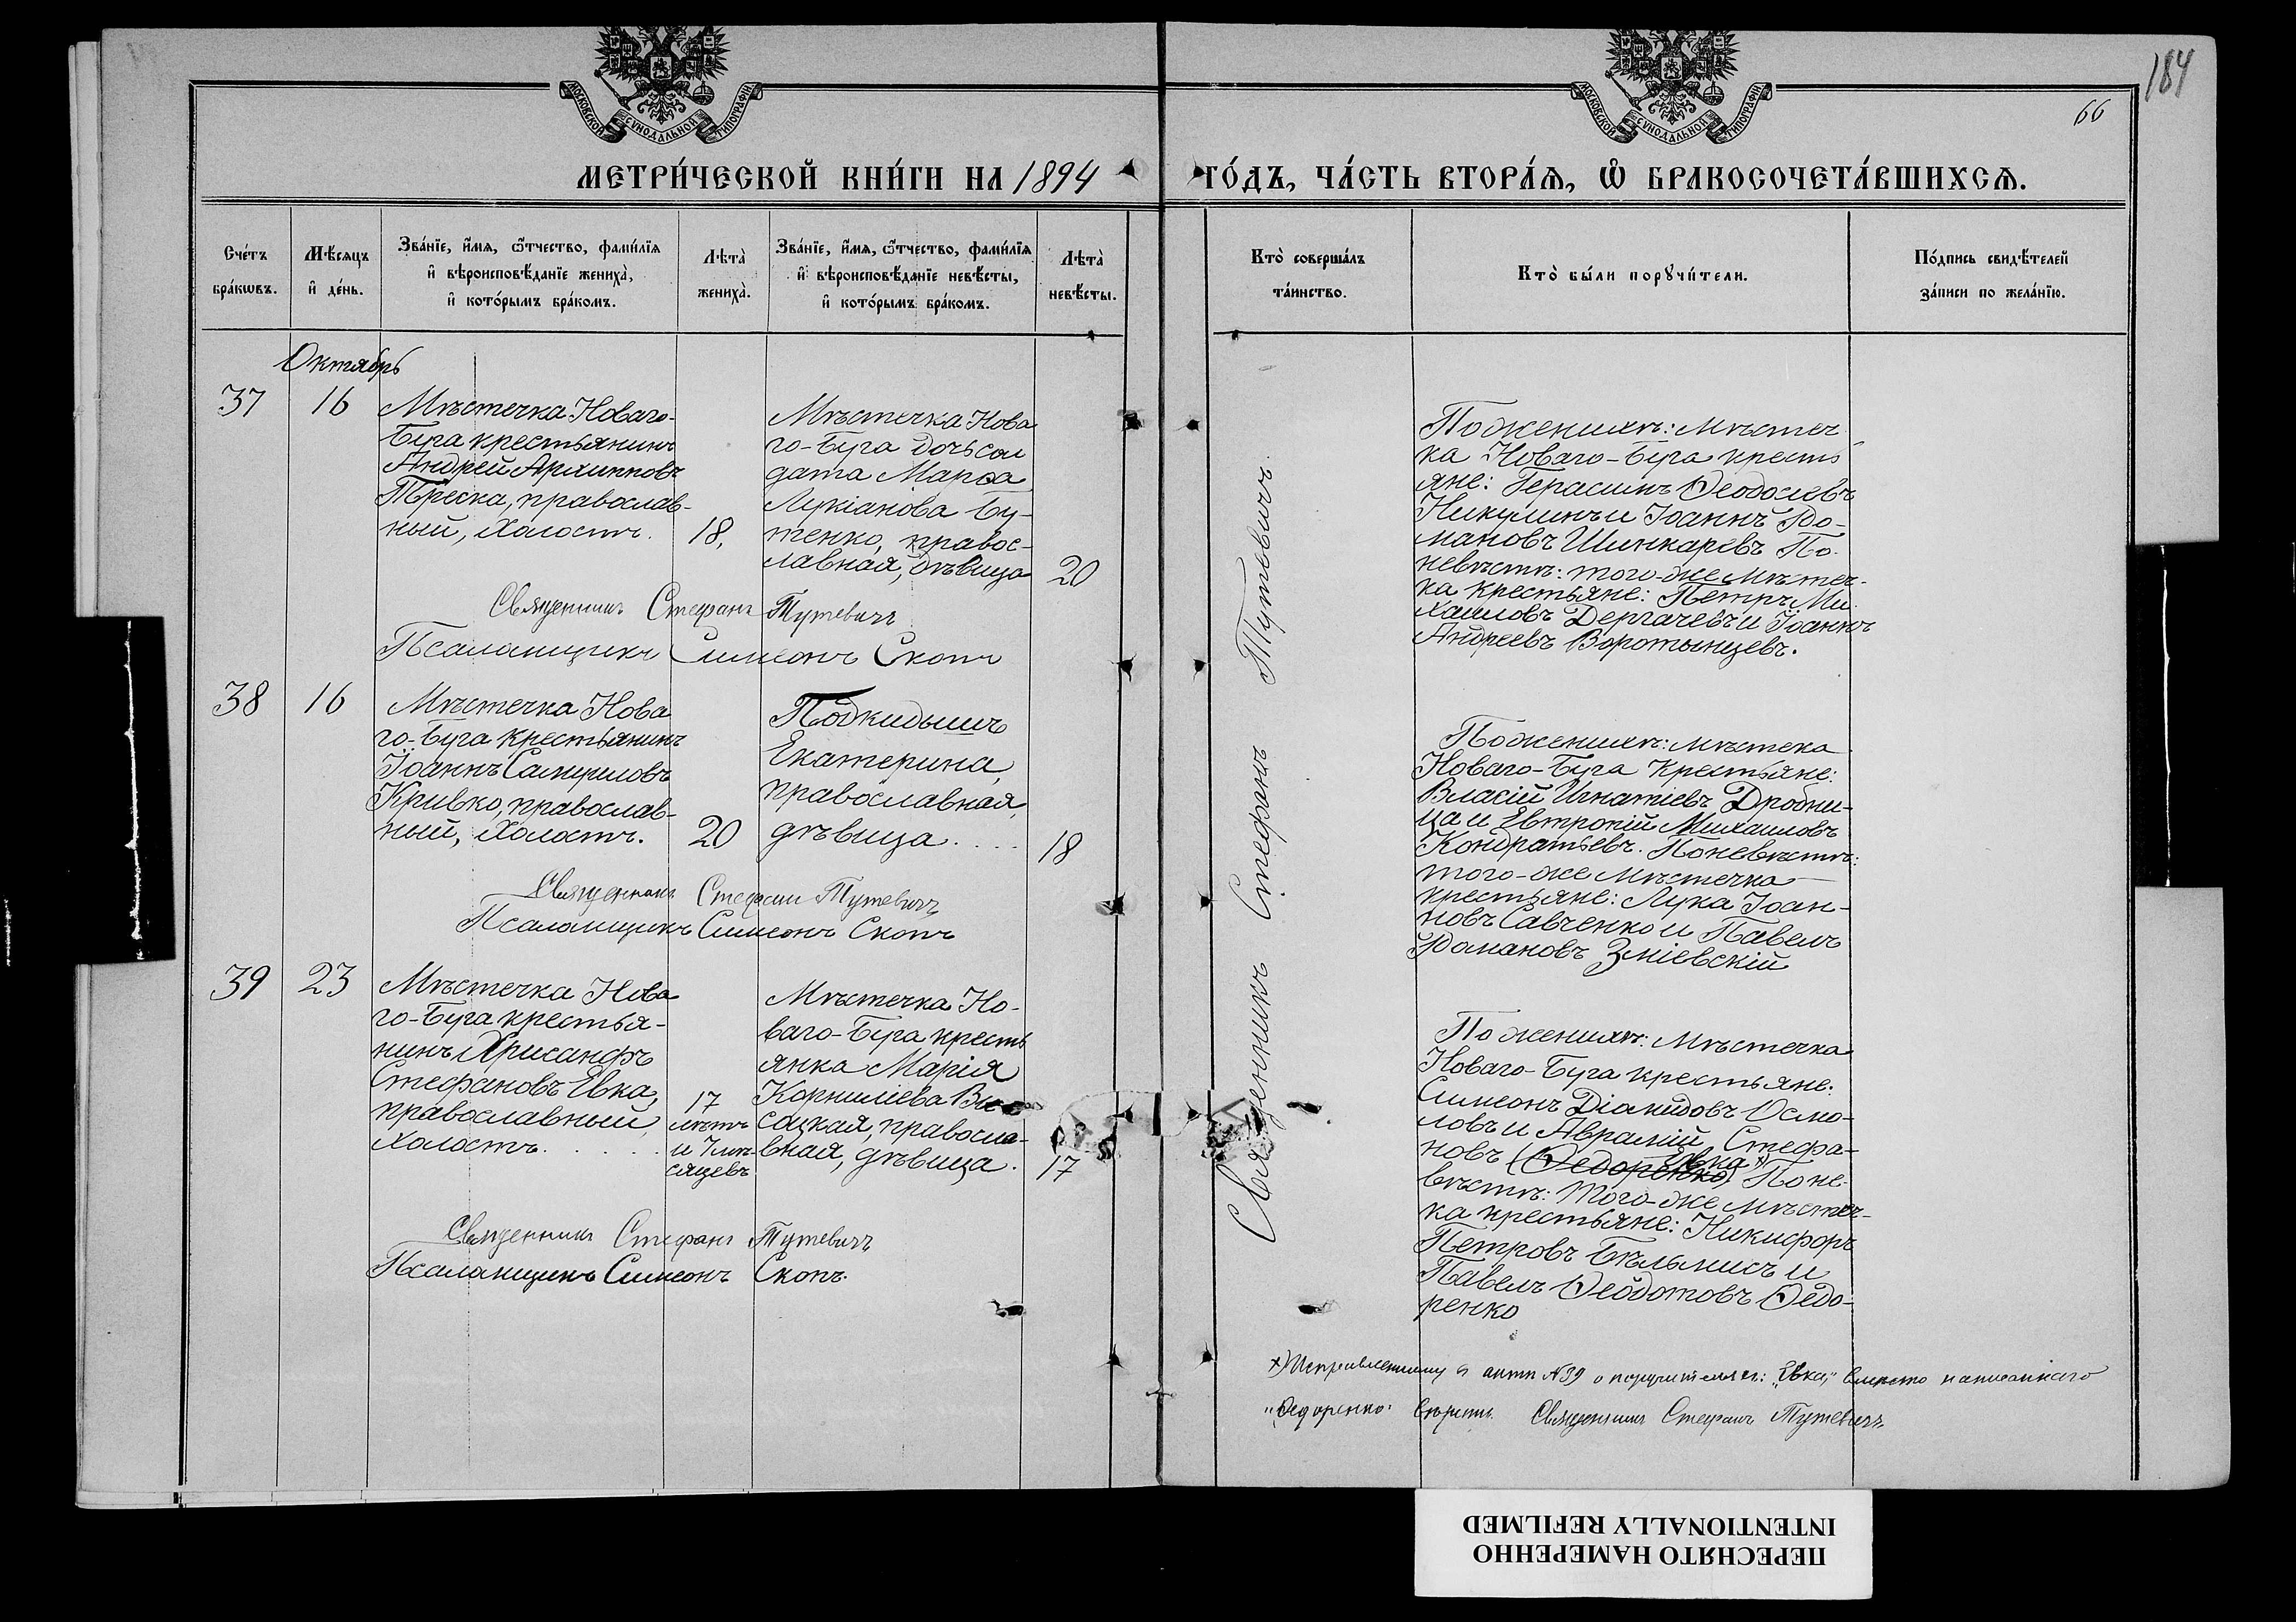 184
66
МОСКОВСКОЙ СѴНОДАЛЬНОЙ ТИПОГРАФІИ
МОСКОВСКОЙ СѴНОДАЛЬНОЙ ТИПОГРАФІИ
МЕТРИ́ЧЕСКОЙ КНИ́ГИ НА 1894 ГО́ДЪ, ЧА́СТЬ ВТОРА́Ѧ, Ѡ҆ БРАКОСОЧЕТА́ВШИХСѦ.
Сче́тъ
бра́кѡвъ.
Мѣ́сѧцъ
и҆ де́нь.
Зва́нїе, и҆́мѧ, ѻ҆́тчество, фами́лїѧ
и҆ вѣроисповѣ́данїе жениха̀,
и҆ кото́рымъ бра́комъ.
Лѣта̀
жениха̀.
Зва́нїе, и҆́мѧ, ѻ҆́тчество, фами́лїѧ
и҆ вѣроисповѣ́данїе невѣ́сты,
и҆ кото́рымъ бра́комъ.
Лѣта̀
невѣ́сты.
Кто̀ соверша́лъ
та́инство.
Кто̀ бы́ли порꙋчи́тели.
По́дпись свидѣ́телей
за́писи по жела́нїю.
Октябрь
37
16
Мѣстечка Новаго-
Буга крестьянинъ
Андрей Архипповъ
Треска, православ-
ный, холостъ.
18.
Мѣстечка Нова
го-Буга дочь сол
дата Марѳа
Лукіанова Бу-
тенко, правос-
лавная, дѣвица
20
Священникъ Стефанъ Тутевичъ
Псаломщикъ Симеонъ Скопъ
По женихѣ: мѣстеч
ка Новаго-Буга кресть
яне: Герасимъ Ѳеодосіевъ
Никулинъ и Іоаннъ Ро-
мановъ Шинкаревъ По
невѣстѣ: того-же мѣстеч-
ка крестьяне: Петръ Ми
хаиловъ Дергачевъ и Іоаннъ
Андреевъ Воротынцевъ.
38
16
Мѣстечка Нова
го-Буга крестьянинъ
Іоаннъ Самуиловъ
Кривко, православ-
ный, холостъ.
20
Подкидышъ
Екатерина,
православная,
дѣвица....
18
Священникъ Стефанъ Тутевичъ
Псаломщикъ Симеонъ Скопъ
По женихѣ: мѣстека
Новаго-Буга крестьяне:
Власій Игнатіевъ Дробни-
ца и Евтропій Михаиловъ
Кондратьевъ. По невѣстѣ:
того-же мѣстечка
крестьяне: Лука Іоан-
новъ Савченко и Павелъ
Романовъ Зміевскій
39
23
Мѣстечка Нова
го-Буга крестья-
нинъ Хрисанфъ
Стефановъ Евка,
православный,
холостъ......
17
лѣтъ
и 7 мѣ-
сяцевъ
Мѣстечка Но-
ваго-Буга кресть
янка Марія
Корниліева Вы-
соцкая, правосла-
вная, дѣвица.
17
Священникъ Стефанъ Тутевичъ
Псаломщикъ Симеонъ Скопъ.
По женихѣ: мѣстечка
Новаго-Буга крестьяне:
Симеонъ Діамидовъ Осмо-
ловъ и Аврамій Стефа-
Евка х)
новъ (Ѳедоренко) По не-
вѣстѣ: того-же мѣстеч-
ка крестьяне: Никифоръ
Петровъ и
Павелъ Ѳеодотовъ Ѳедо-
ренко
Священникъ Стефанъ Тутевичъ.
х) Исправленному въ актѣ №39 о поручителяхъ: „Евка," вмѣсто написаннаго
„Ѳедоренко" вѣрить. Священникъ Стефанъ Тутевичъ
ПЕРЕСНЯТО НАМЕРЕННО
INTENTIONALLY REFILMED